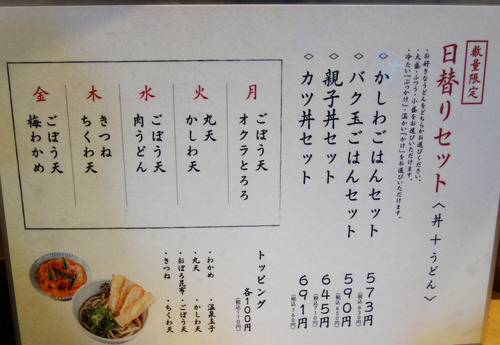 数量限定
日替りセット〈丼+うどん〉
・お好きなうどんをどちらかお選びください。
・大盛・ふつう・小盛をお選びいただけます。
・冷たい「ぶっかけ」・温かい「かけ」をお選びいただけます。
◇かしわごはんセット 573円(税込630円)
◇バク玉ごはんセット 590円
◇親子丼セット 645円(税込710円)
◇カツ丼セット 691円(税込760円)
月
ごぼう天
オクラとろろ
火
丸天
かしわ天
水
ごぼう天
肉うどん
木
きつね
ちくわ天
金
ごぼう天
梅わかめ
トッピング
各100円(税込110円)
・わかめ ・温泉玉子
・丸天 ・かしわ天
・おぼろ昆布 ・ごぼう天
・きつね ・ちくわ天